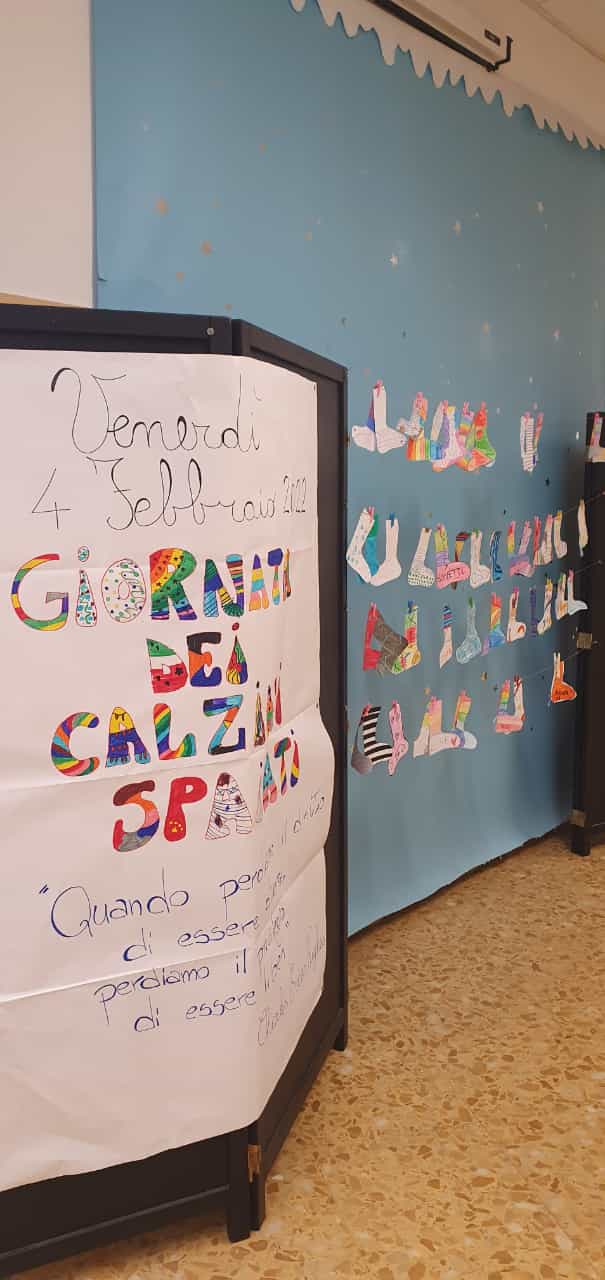 Venerdì
4 Febbraio 2022
GiORNATA
DEi
CALZiNi
SPAiATi
"Quando perdiamo il diritto
di essere
perdiamo il
di essere liberi"